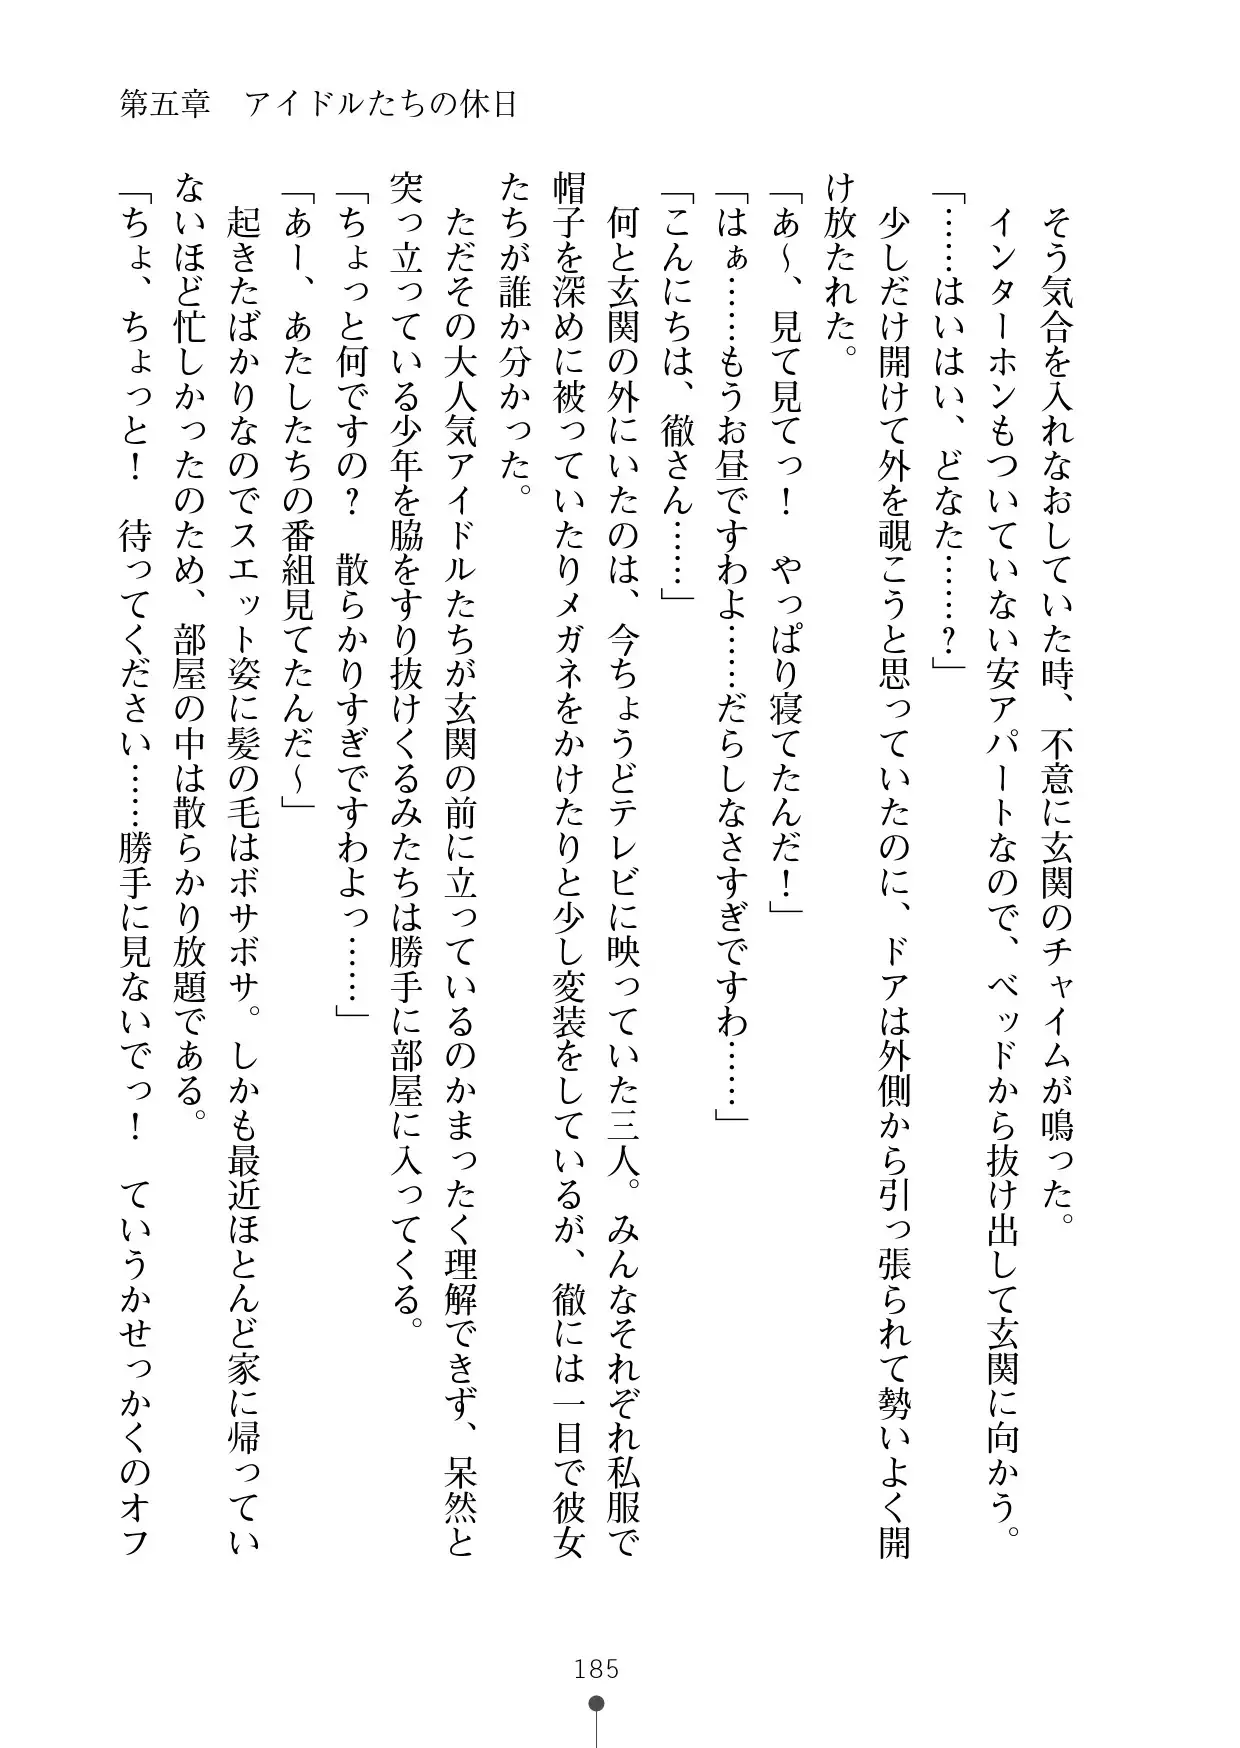 第五章　アイドルたちの休日
　そう気合を入れなおしていた時、不意に玄関のチャイムが鳴った。
　インターホンもついていない安アパートなので、ベッドから抜け出して玄関に向かう。
「……はいはい、どなた……？」
　少しだけ開けて外を覗こうと思っていたのに、ドアは外側から引っ張られて勢いよく開
け放たれた。
「あ～、見て見てっ！　やっぱり寝てたんだ！」
「はぁ……もうお昼ですわよ……だらしなさすぎですわ……」
「こんにちは、徹さん……」
　何と玄関の外にいたのは、今ちょうどテレビに映っていた三人。みんなそれぞれ私服で
帽子を深めに被っていたりメガネをかけたりと少し変装をしているが、徹には一目で彼女
たちが誰か分かった。
　ただその大人気アイドルたちが玄関の前に立っているのかまったく理解できず、呆然と
突っ立っている少年を脇をすり抜けくるみたちは勝手に部屋に入ってくる。
「ちょっと何ですの？　散らかりすぎですわよっ……」
「あー、あたしたちの番組見てたんだ～」
　起きたばかりなのでスエット姿に髪の毛はボサボサ。しかも最近ほとんど家に帰ってい
ないほど忙しかったのため、部屋の中は散らかり放題である。
「ちょ、ちょっと！　待ってください……勝手に見ないでっ！　ていうかせっかくのオフ
185